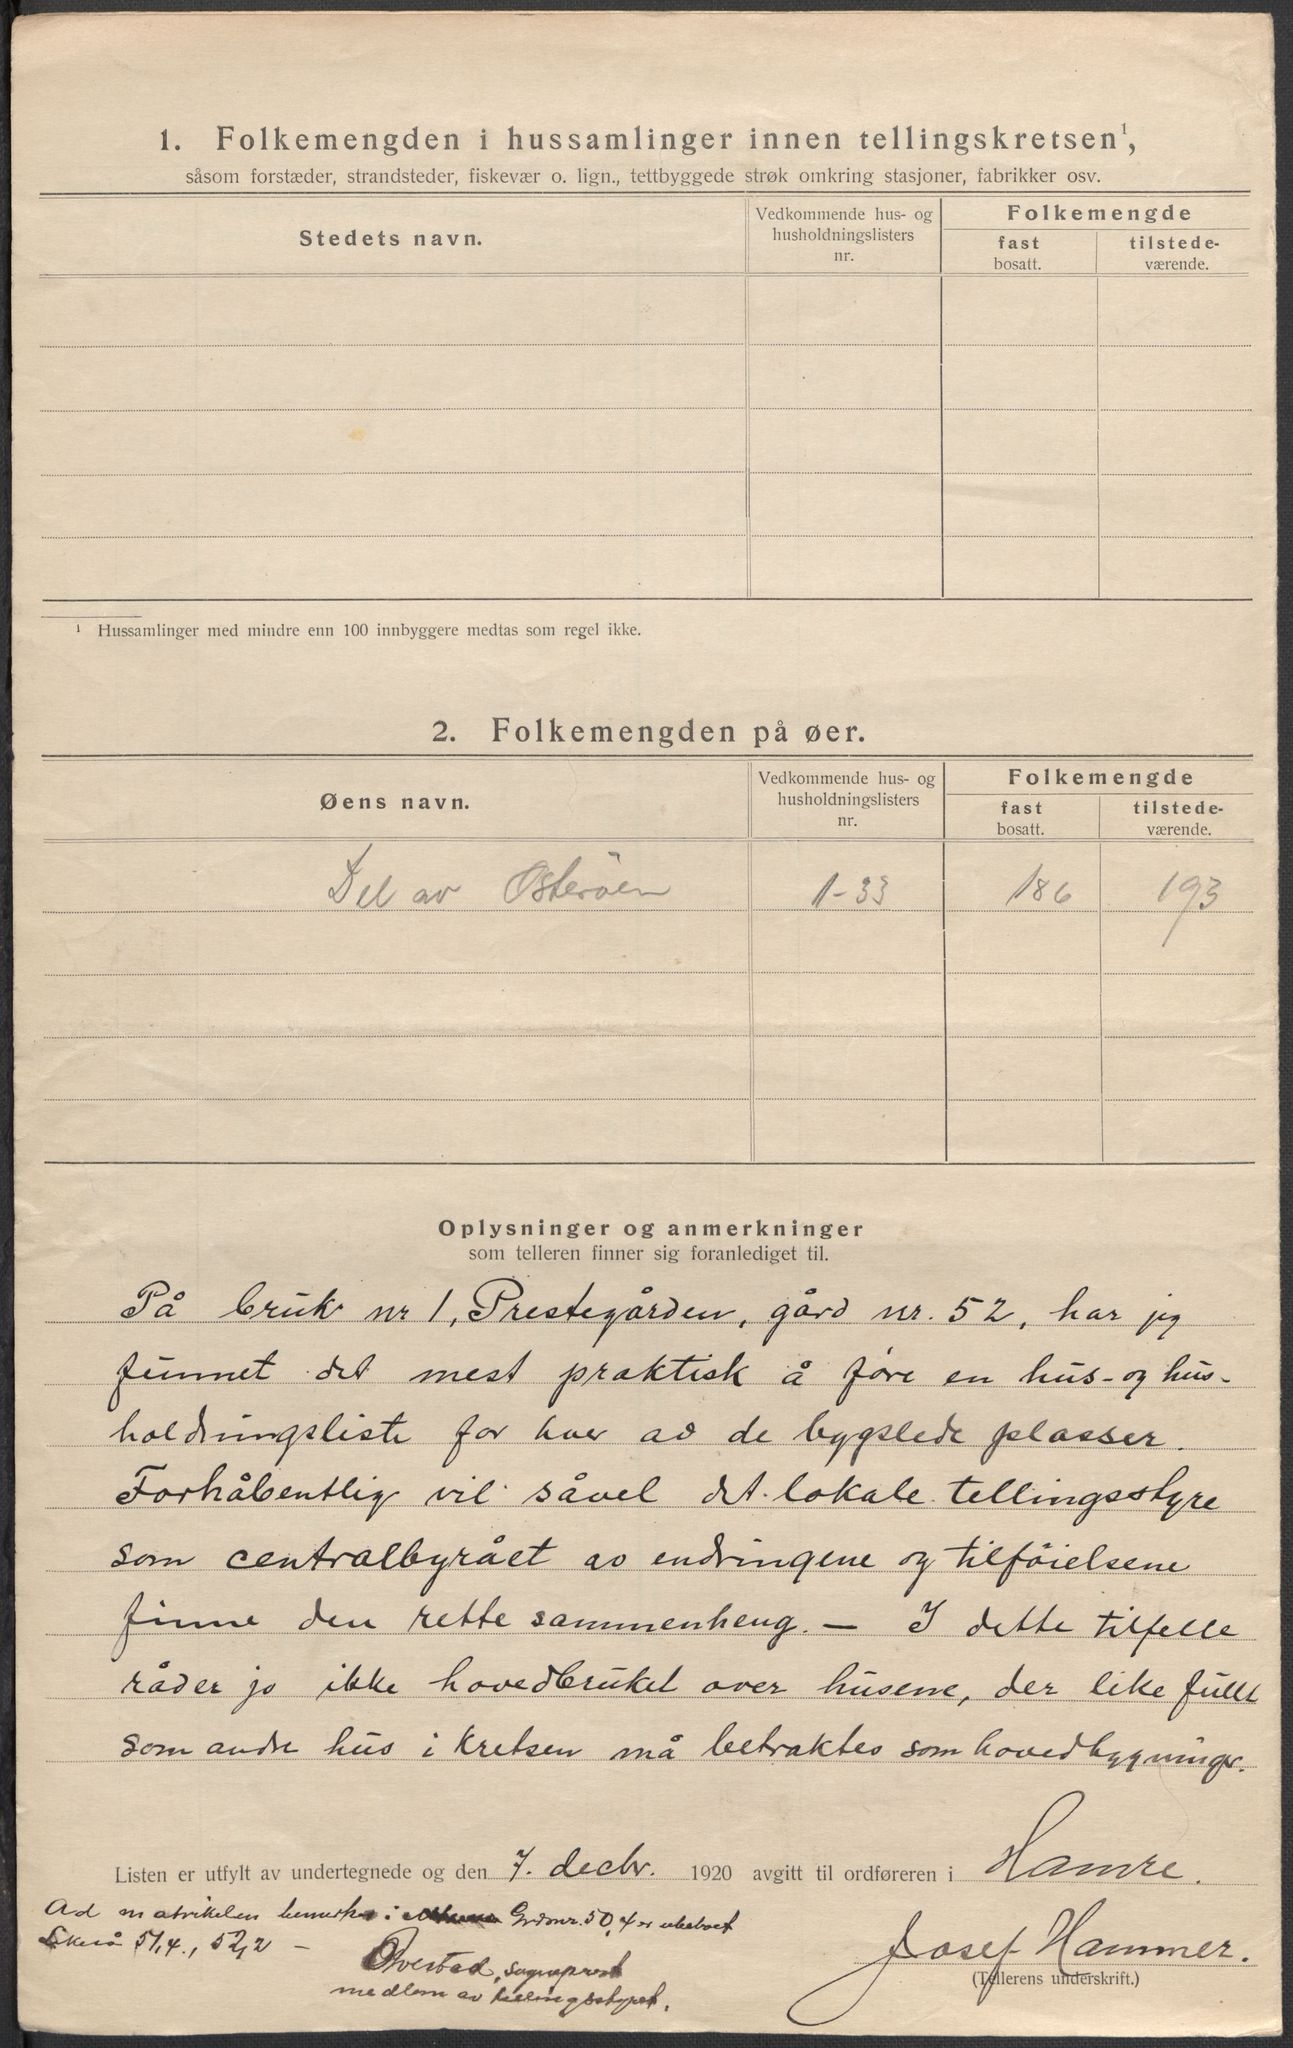 1. Folkemengden i hussamlinger innen tellingskretsen¹,
såsom forstæder, strandsteder, fiskevær o. lign., tettbyggede strøk omkring stasjoner, fabrikker osv.
Stedets navn.
Vedkommende hus- og
husholdningslisters
nr.
Folkemengde
fast
bosatt.
tilstede-
værende.
¹ Hussamlinger med mindre enn 100 innbyggere medtas som regel ikke.
2. Folkemengden på øer.
Øens navn.
Vedkommende hus- og
husholdningslisters
nr.
Folkemengde
fast
bosatt.
tilstede-
værende.
Del av Osteröen 1-33 186 193
Oplysninger og anmerkninger
som telleren finner sig foranlediget til.
På bruk nr 1, Prestegården, gård nr. 52, har jeg
funnet det mest praktisk å føre en hus- og hus-
holdningsliste for hver av de bygslede plasser.
Forhåbentlig vil såvel det lokale tellingsstyre
som centralbyrået av endringene og tilföielsene
finne den rette sammenheng. — I dette tilfelle
råder jo ikke hovedbruket over husene, der like fullt
som andre hus i kretsen må betraktes som hovedbygninger.
Listen er utfylt av undertegnede og den 7. decbr. 1920 avgitt til ordføreren i Hamre.
Ad matrikelen bemerkes: Grdsnr. 50,4 er ubeboet
Likeså 51,4., 52,2 —
Josef Hammer.
(Tellerens underskrift.)
sogneprest
medlem av tellingsstyret.